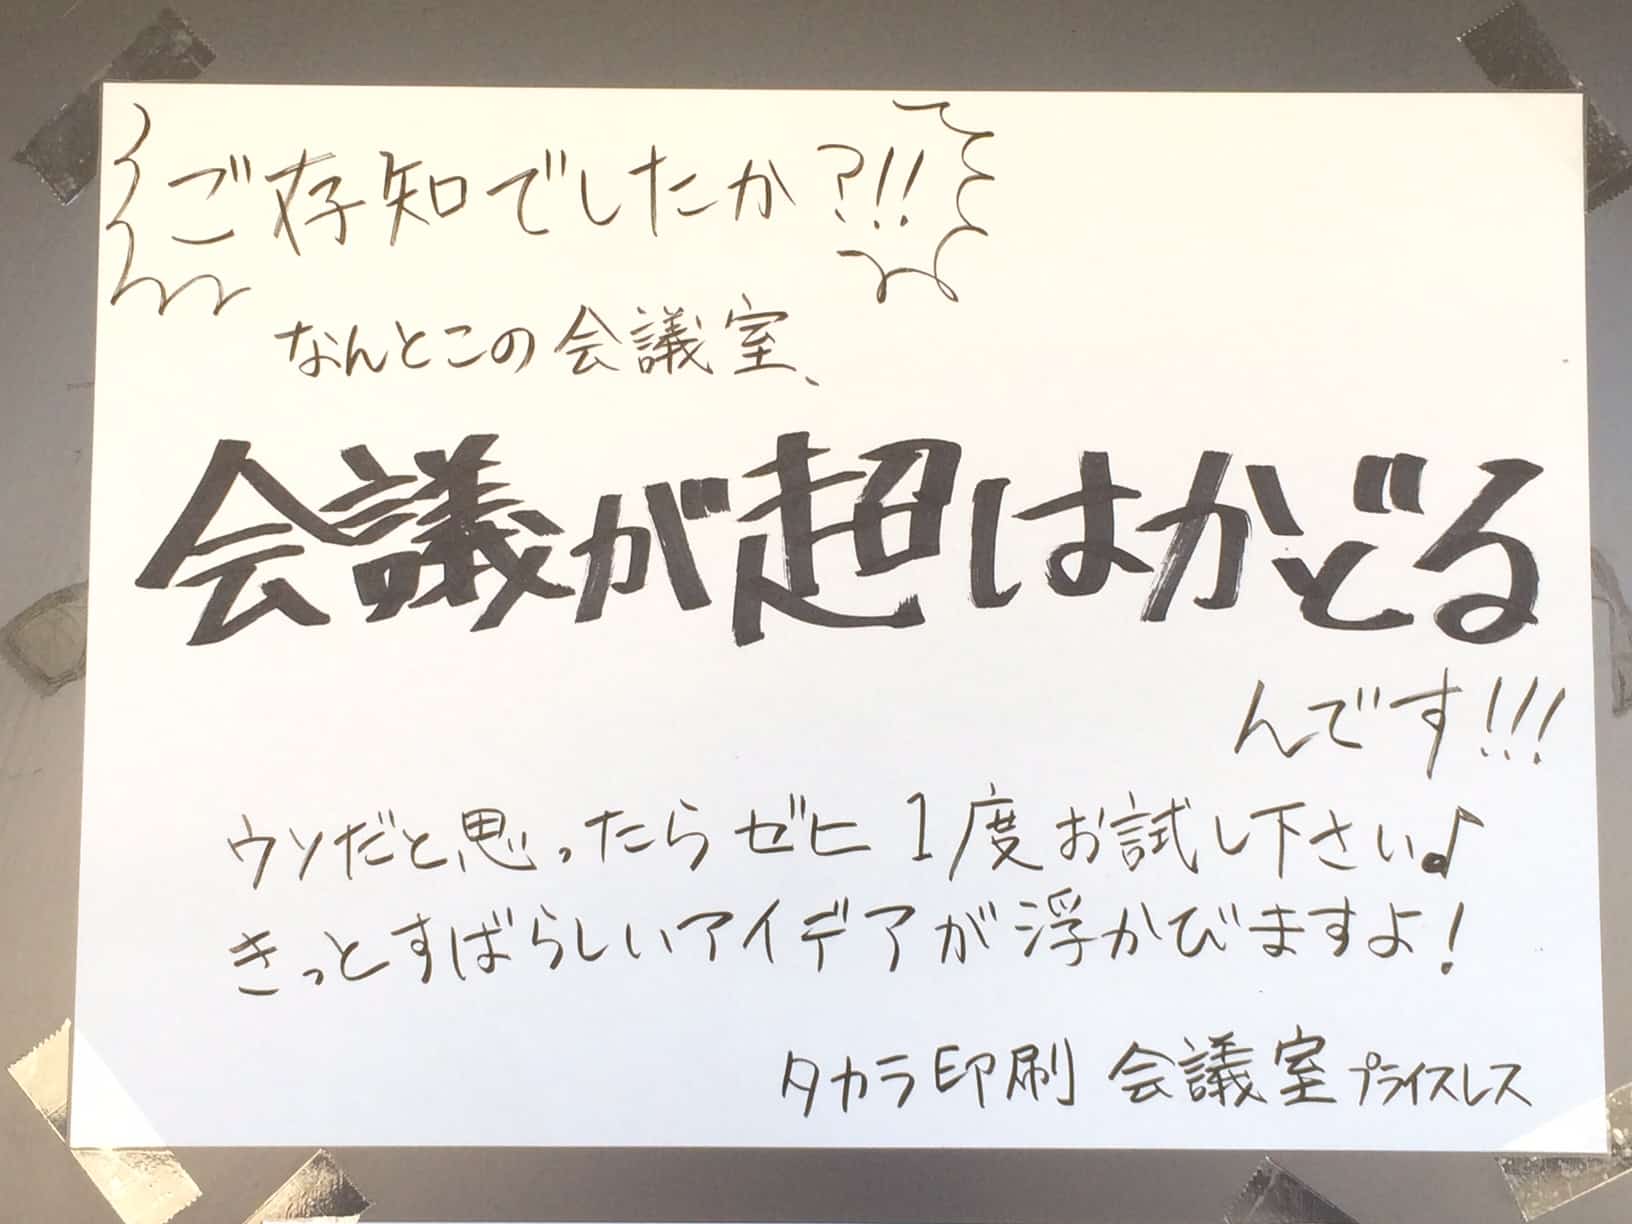 ご存知でしたか?!!
なんとこの会議室、
会議が超はかどる
んです!!!
ウソだと思ったらゼヒ1度お試し下さい♪
きっとすばらしいアイデアが浮かびますよ!
タカラ印刷 会議室プライスレス